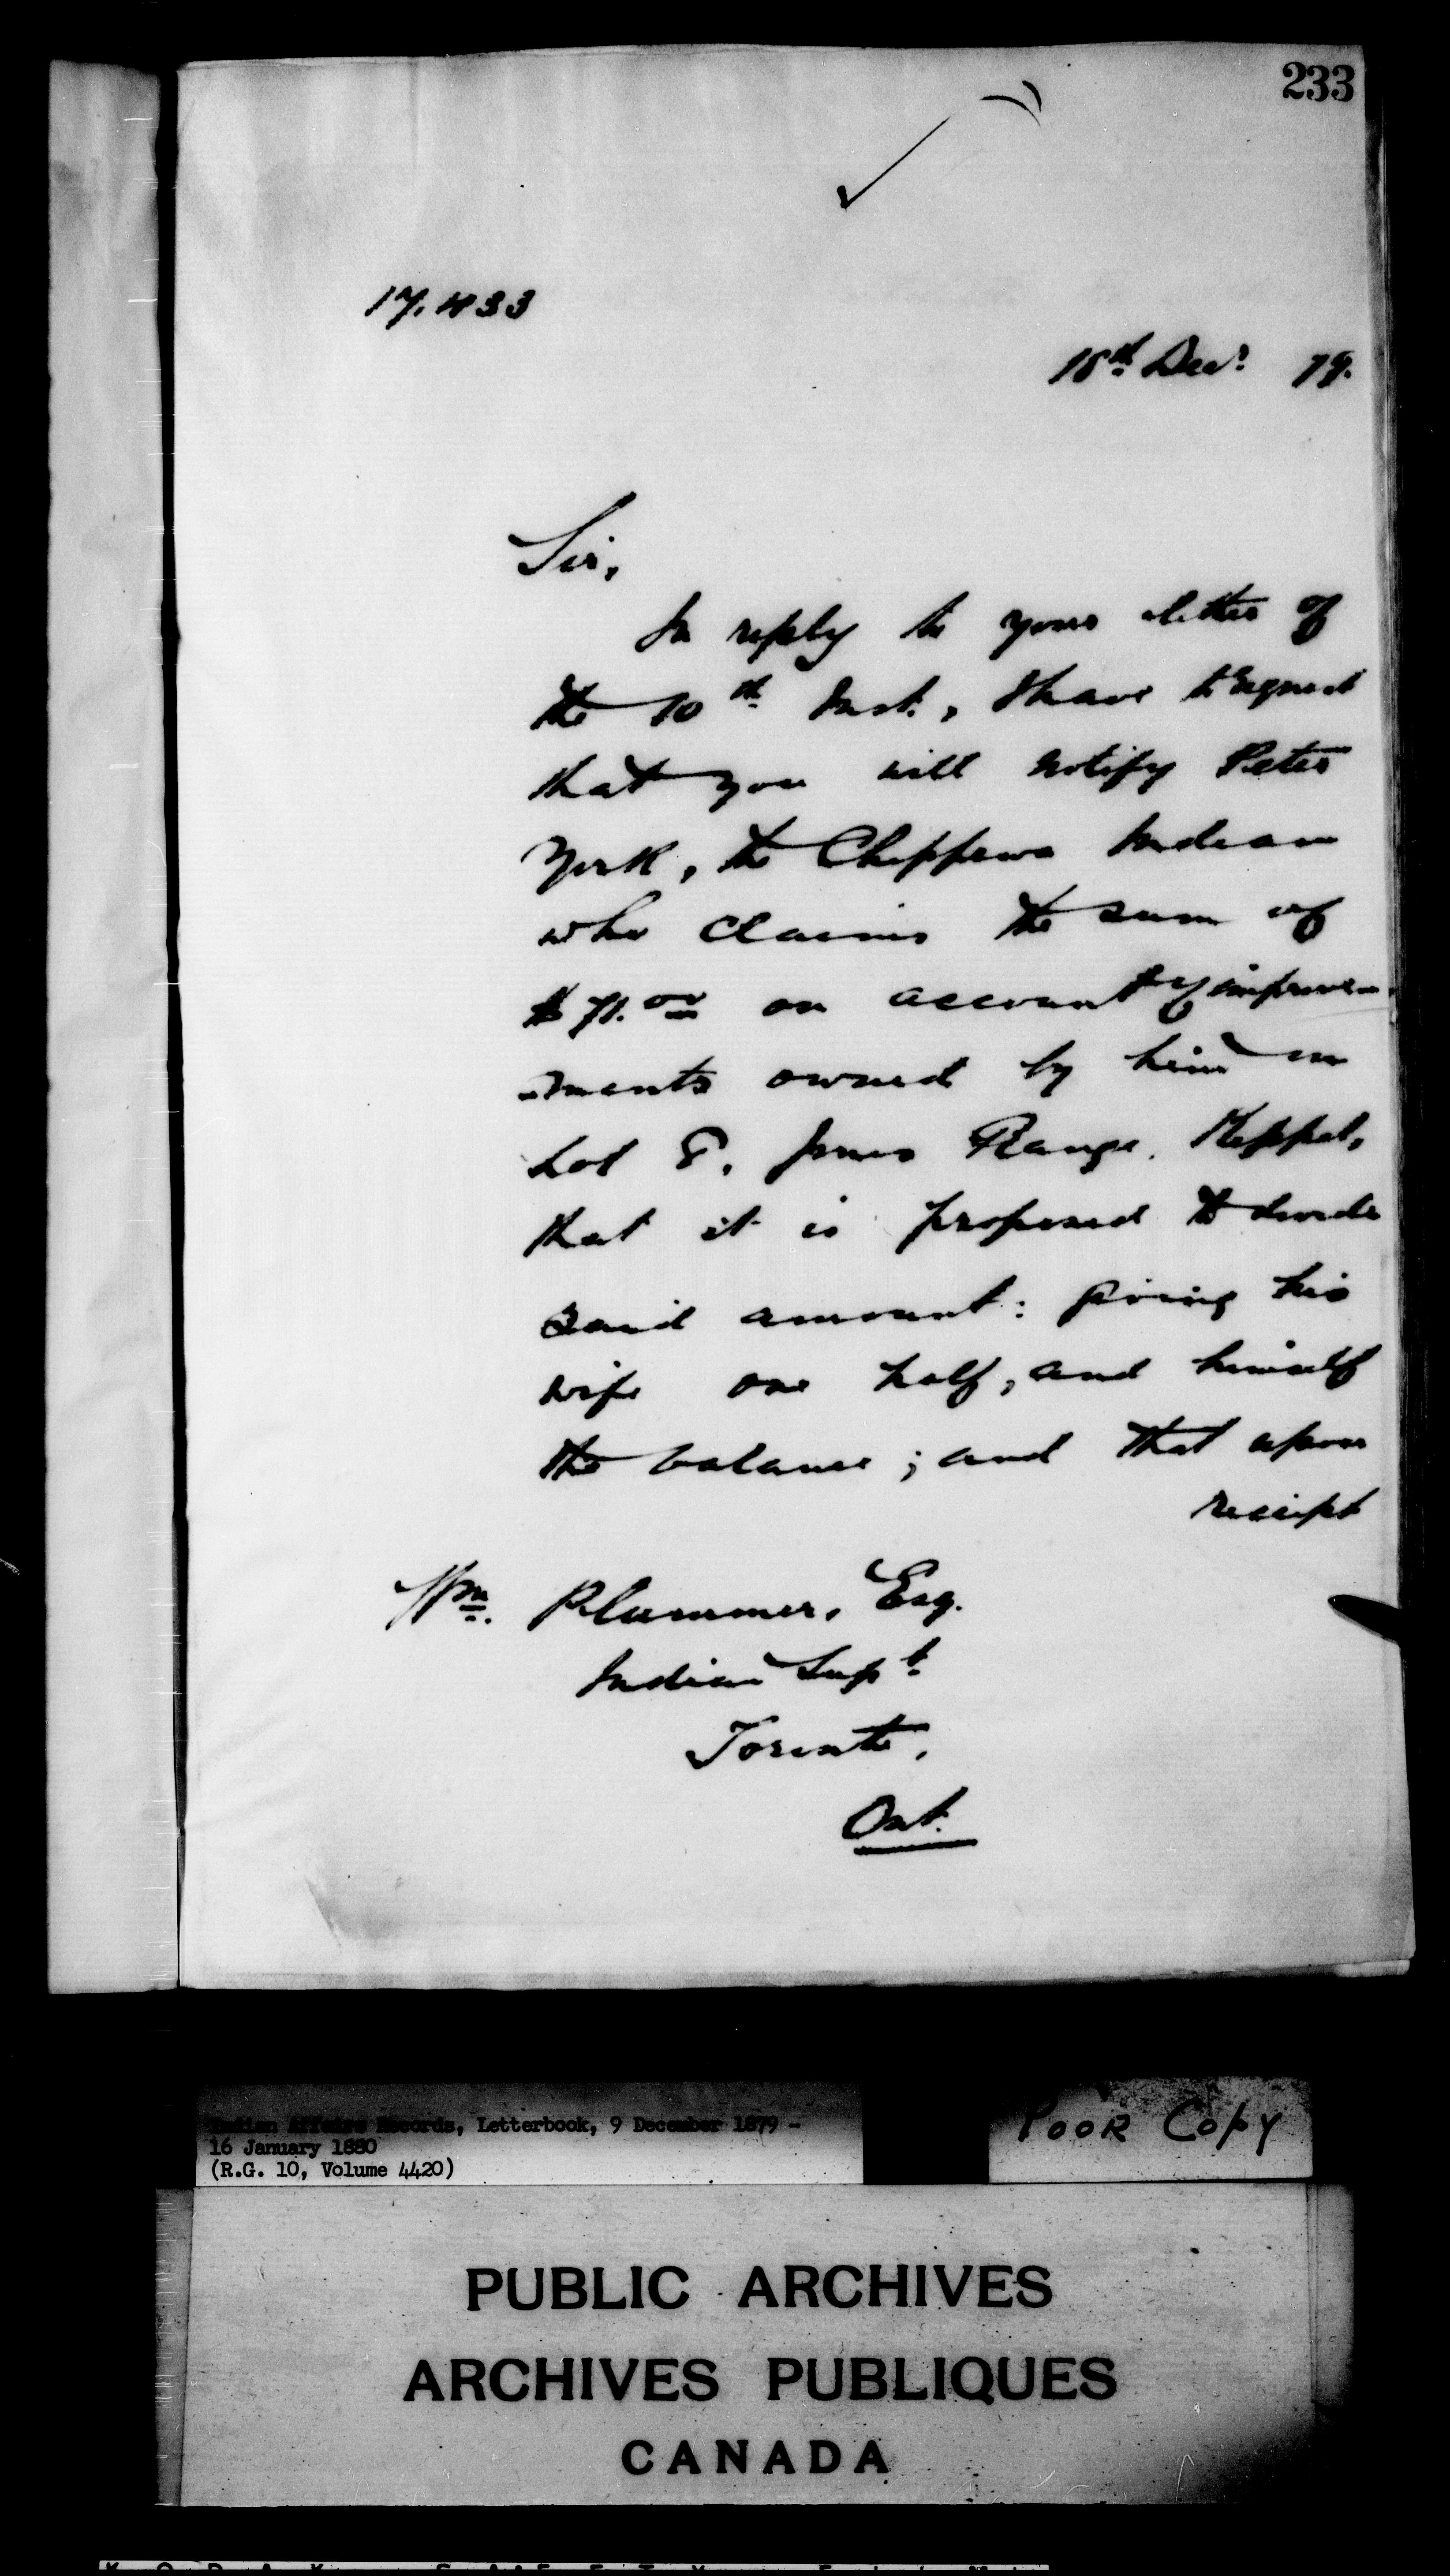 233
17,433
18th Decr. 79.
Sir,
In reply to your letter of
the 10th Inst., I have to request
that you will notify Peter
York, the Chippewa Indian
who claims the sum of
$71.00 on account of improve-
-ments owned by him on
Lot 8, Jones Range, Keppel,
that it is proposed to divide
said amount: giving his
wife one half, and himself
the balance; and that upon
receipt
Wm. Plummer, Esq.
Indian Supt.
Toronto,
Ont.
Indian Affairs Records, Letterbook, 9 December 1879 -
16 January 1880
(R.G. 10, Volume 4420)
POOR COPY
PUBLIC ARCHIVES
ARCHIVES PUBLIQUES
CANADA